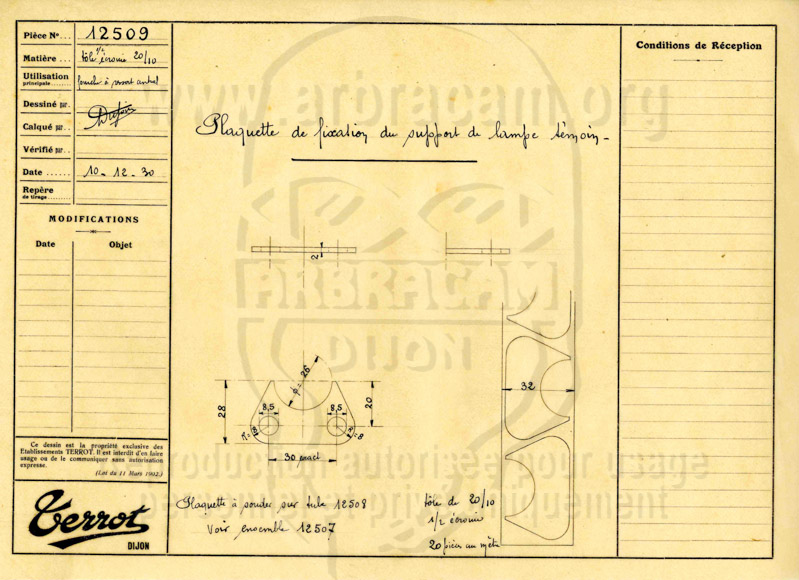 Pièce No... 12509
Matière... tôle 1/2 écrouie 20/10
Utilisation
principale... fourche à ressort central
Dessiné par.
Calqué par..
Vérifié par..
Date...... 10-12-30
Repère
de tirage.......
MODIFICATIONS
Date Objet
Ce dessin est la propriété exclusive des
Etablissements TERROT. Il est interdit d'en faire
usage ou de le communiquer sans autorisation
expresse.
(Loi du 11 Mars 1902.)
Terrot
DIJON
Plaquette de fixation du support de lampe témoin-
2
φ = 26
28
8,5
8,5
20
R=8
R=8
30 exact
32
Plaquette à souder sur tube 12508
Voir ensemble 12507
tôle de 20/10
1/2 écrouie
20 pièces au mètre
Conditions de Réception
www.arbracam.org
ARBRACAM
DIJON
Reproduction autorisée pour usage
personnel et privé uniquement